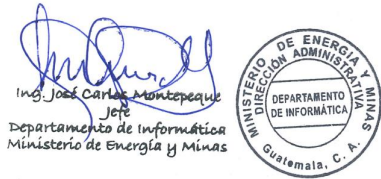 Ing. José Carlos Montepeque
Jefe
Departamento de Informática
Ministerio de Energía y Minas
MINISTERIO DE ENERGIA Y MINAS
DIRECCIÓN ADMINISTRATIVA
DEPARTAMENTO
DE INFORMÁTICA
Guatemala, C. A.